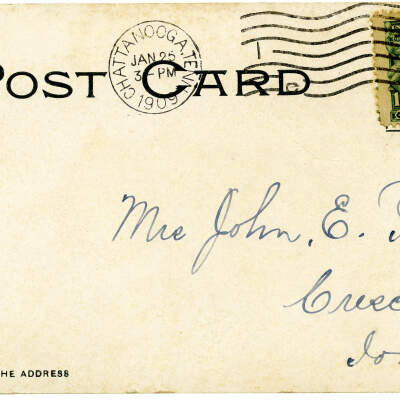 POST CARD
CHATTANOOGA, TENN.
JAN 25
3-PM
1909
1
Mrs John. E.
Cresc
Io
HE ADDRESS